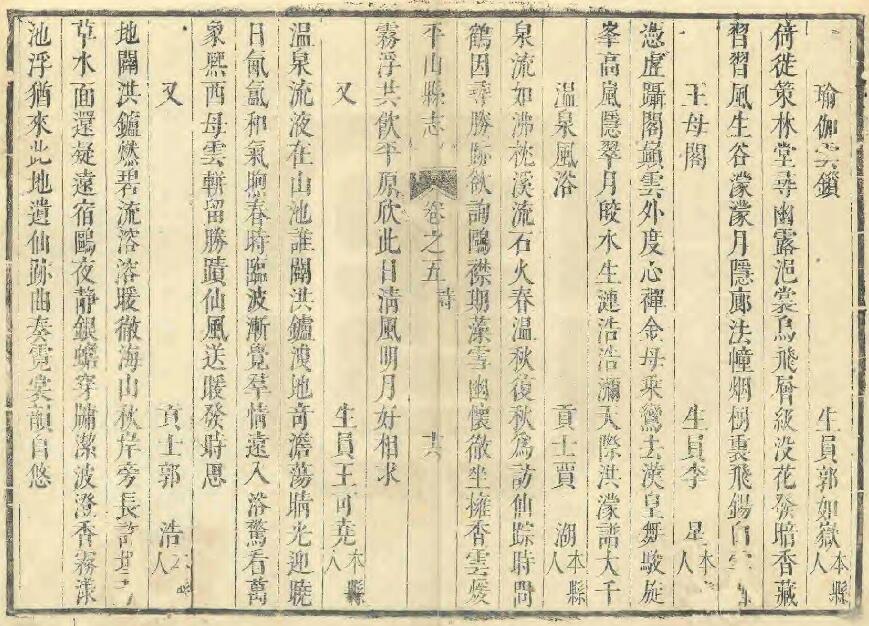 瑜伽雲鎖 生員郭如嶽本縣人
倚徙策林堂尋幽露浥裳鳥飛層級没花發暗香藏
習習風生谷濛濛月隱廊法幢烟樹裏飛錫白雲
王母閣 生員李 本縣人
憑虛躡閣巔雲外度心禪金母乘鸞去漢皇舞駿旋
峯高嵐隱翠月皎水生漣浩浩瀰天際洪濛話大千
温泉風浴 貢士賈 湖本縣人
泉流如沸枕溪流石火春温秋復秋為訪仙踪時問
鶴因尋勝跡欲詢鷗襟期藻雪幽懷徹坐擁香雲煖
平山縣志 卷之五 詩 十六
霧浮共飲平原欣此日清風明月好相求
又 生員王可堯本縣人
温泉流液在山池誰闢洪鑪洩地奇澹蕩晴光迎曉
日氤氳和氣煦春時臨波漸覺羣情遠入浴驚看萬
象熙西母雲軿留勝蹟仙風送暖發時思
又 貢士郭 浩本縣人
地闢洪鑪燃碧流溶溶暖徹海山秋岸旁長
草水面還凝遠宿鷗夜静銀蟾穿牖潔波澄香霧漾
池浮猶來此地遺仙跡曲奏霓裳韻自悠